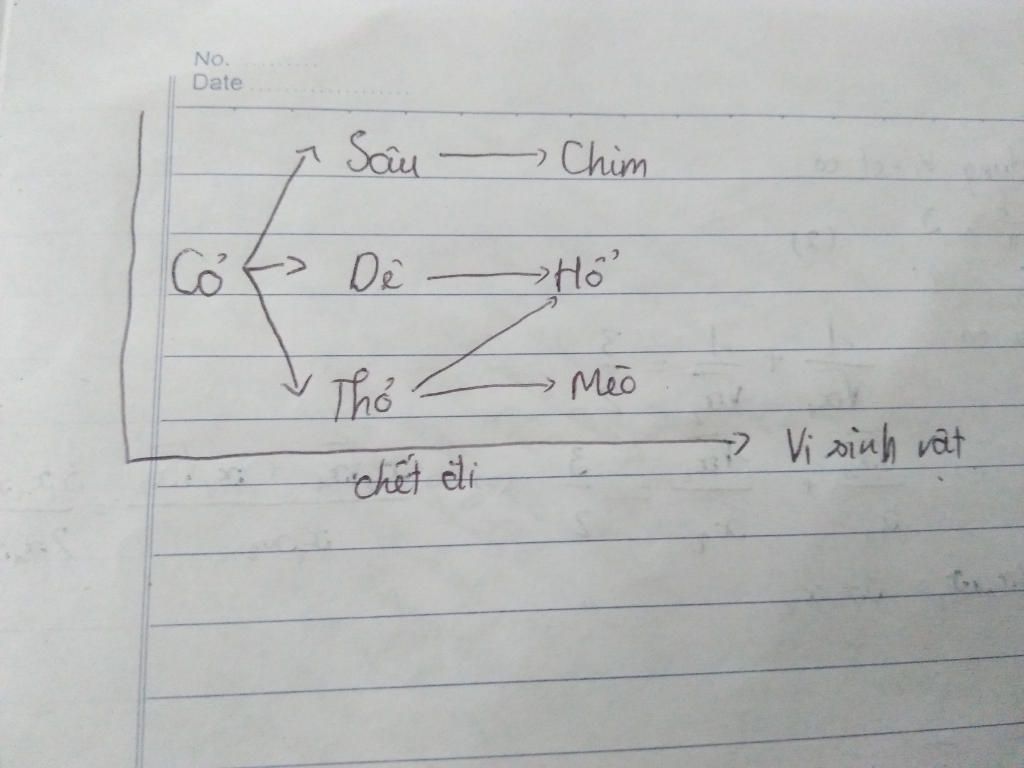 No.
Date
Sâu → Chim
Cỏ → Dê → Hổ
Thỏ → Mèo
Vi sinh vật
chết đi